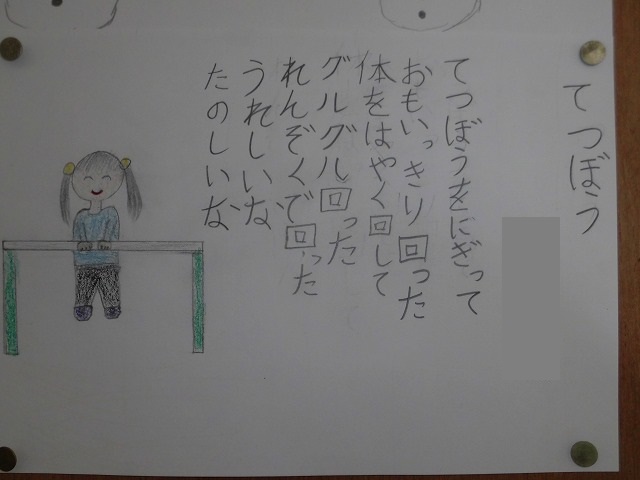 てつぼう
てつぼうをにぎって
おもいっきり回った
体をはやく回して
グルグル回った
れんぞくで回った
うれしいな
たのしいな